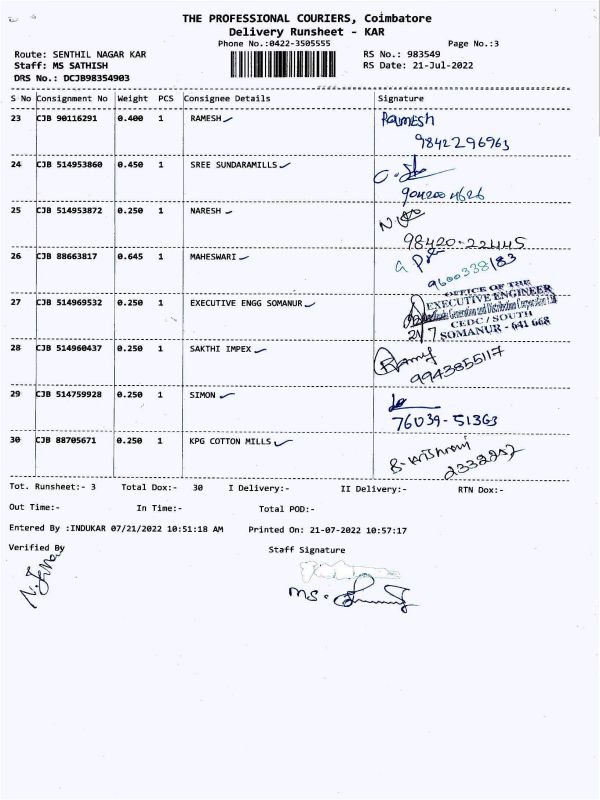 THE PROFESSIONAL COURIERS, Coimbatore
Delivery Runsheet - KAR
Phone No.:0422-3505555 Page No.:3
Route: SENTHIL NAGAR KAR RS No.: 983549
Staff: MS SATHISH RS Date: 21-Jul-2022
DRS No.: DCJB98354903
S No Consignment No Weight PCS Consignee Details Signature
23 CJB 90116291 0.400 1 RAMESH Ramesh
9842296963
24 CJB 514953860 0.450 1 SREE SUNDARAMILLS
904200 4626
25 CJB 514953872 0.250 1 NARESH
98420-22445
26 CJB 88663817 0.645 1 MAHESWARI
9600338183
27 CJB 514969532 0.250 1 EXECUTIVE ENGG SOMANUR
OFFICE OF THE
EXECUTIVE ENGINEER
Generation and Distribution Corporation Ltd
CEDC / SOUTH
21/7 SOMANUR - 641 668
28 CJB 514960437 0.250 1 SAKTHI IMPEX
9943855117
29 CJB 514759928 0.250 1 SIMON
76039-51363
30 CJB 88705671 0.250 1 KPG COTTON MILLS
2332257
Tot. Runsheet:- 3 Total Dox:- 30 I Delivery:- II Delivery:- RTN Dox:-
Out Time:- In Time:- Total POD:-
Entered By :INDUKAR 07/21/2022 10:51:18 AM Printed On: 21-07-2022 10:57:17
Verified By Staff Signature
MS.